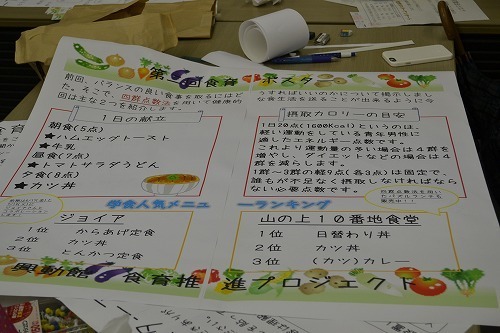 第 回食育 ポスター
前回、バランスの良い食事を取るにはど
うすればいいのかについて掲示しまし
た。そこで、四群点数法を用いて健康的
な食生活を送ることが出来るように今
回は主な2つを紹介します。
1日の献立
朝食(5点)
★ハムエッグトースト
★牛乳
昼食(7点)
★トマトサラダうどん
夕食(8点)
★カツ丼
摂取カロリーの目安
1日20点(1600Kcal)というのは、
軽い運動をしている青年男性に
適したエネルギー点数です。
これより運動量の多い場合は4群を
増やし、ダイエットなどの場合は4
群を減らします。
1群~3群の軽9点(各3点)は固定で、
誰もが不足なく摂取しなければなら
ない必要点数です。
四群点数法を用い
たパズルランチも
販売中!!
学食人気メニュ ーランキング
ジョイア
1位 からあげ定食
2位 カツ丼
3位 とんかつ定食
山の上10番地食堂
1位 日替わり丼
2位 カツ丼
3位 (カツ)カレー
興動館 食育推 進プロジェクト